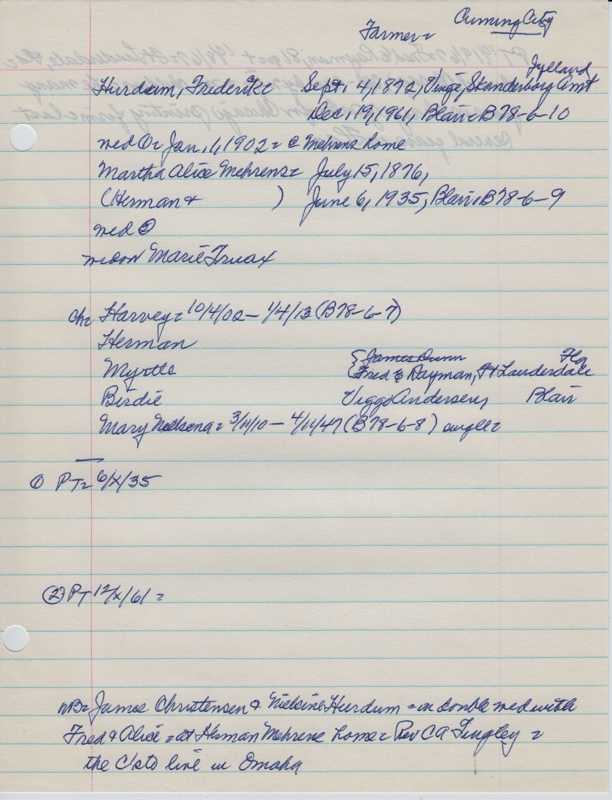 Farmer = Cuming City
Jylland
Hurdum, Frederike Sept. 4, 1872, Vinge, Skanderborg Amt
Dec. 19, 1961, Blair B78-6-10
wed ① Jan. 1, 1902 = @ Mehrens home
Martha Alice Mehrens = July 15, 1876,
(Herman & ) June 6, 1935, Blair, B78-6-9
wed ②
widow Marie Truax
ch = Harvey = 10/4/02 – 1/4/13 (B78-6-7)
Herman
Myrtle { James Dunn
{ Fred E Rayman, Ft Lauderdale Fla
Birdie Viggo Andersen, Blair
Mary Nielsena = 3/11/10 – 4/11/47 (B78-6-8) single =
① PT = 6/x/35
② PT 12/x/61 =
NB = James Christensen & Nielsine Hurdum = in double wed with
Fred & Alice = at Herman Mehrens home = Rev CA Tingley =
the C'sto live in Omaha